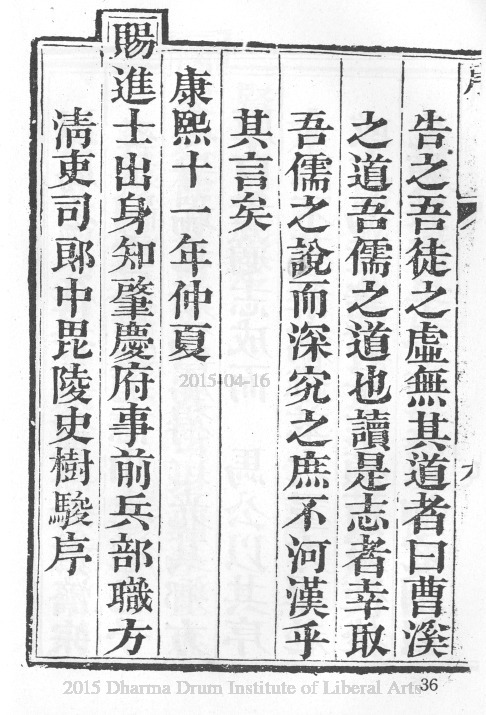 告之吾徒之虛無其道者曰曹溪
之道吾儒之道也讀是志者幸取
吾儒之說而深究之庶不河漢乎
其言矣
康熙十一年仲夏
賜進士出身知肇慶府事前兵部職方
淸吏司郎中毘陵史樹駿序
2015-04-16
36
2015 Dharma Drum Institute of Liberal Arts